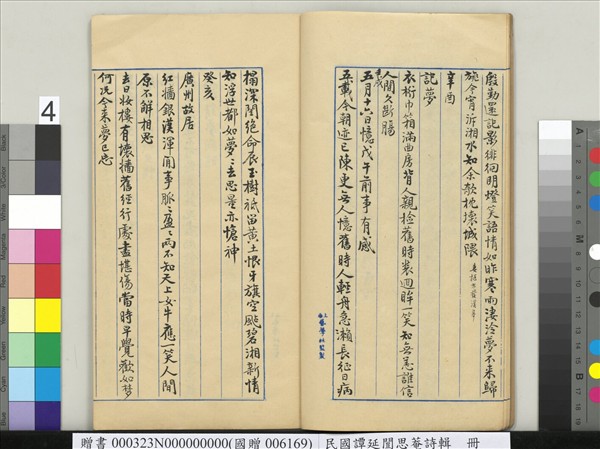 殷勤還記影徘徊明燈笑語情如昨寒雨淒泠夢不來歸
旐今宵泝湘水知余欹枕壞城隈
辛酉
記夢
衣桁巾箱滿曲房背人親捡舊時裳迴眸一笑知無恙誰信
人間久斷腸
五月十六日憶戊午前事有感
五載今朝迹已陳更無人憶舊時人輕舟急瀨長征日病
榻深閨絕命辰玉樹祗留黃土恨牙旗空颭碧湘新情
知浮世都如夢夢去思量亦愴神
癸亥
廣州故居
紅墻銀漢渾閒事脈脈盈盈兩不知天上女牛應一笑人間
原不解相思
去日妝樓有壞墻舊經行處盡堪傷當時早覺歡如夢
何况今來夢已忘
4
贈書 000323N000000000(國贈 006169) 民國譚延闓思菴詩輯 冊